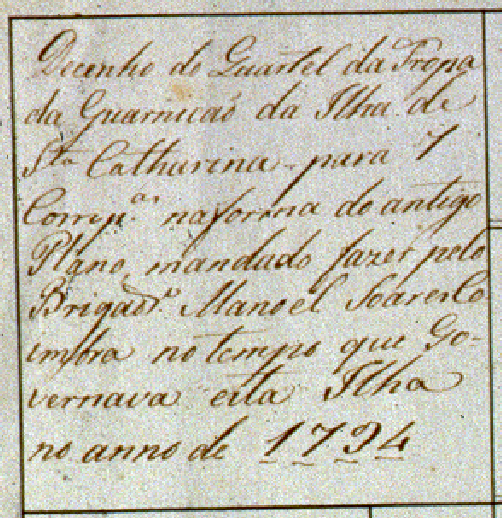 Decenho do Quartel da Tropa
da Guarnicaõ da Ilha de
S.ta Catharina para 7
Comp.as na forma do antigo
Plano, mandado fazer pelo
Brigad.ro Manoel Soares Co
imbra no tempo que Go-
vernava esta Ilha
no anno de 1794